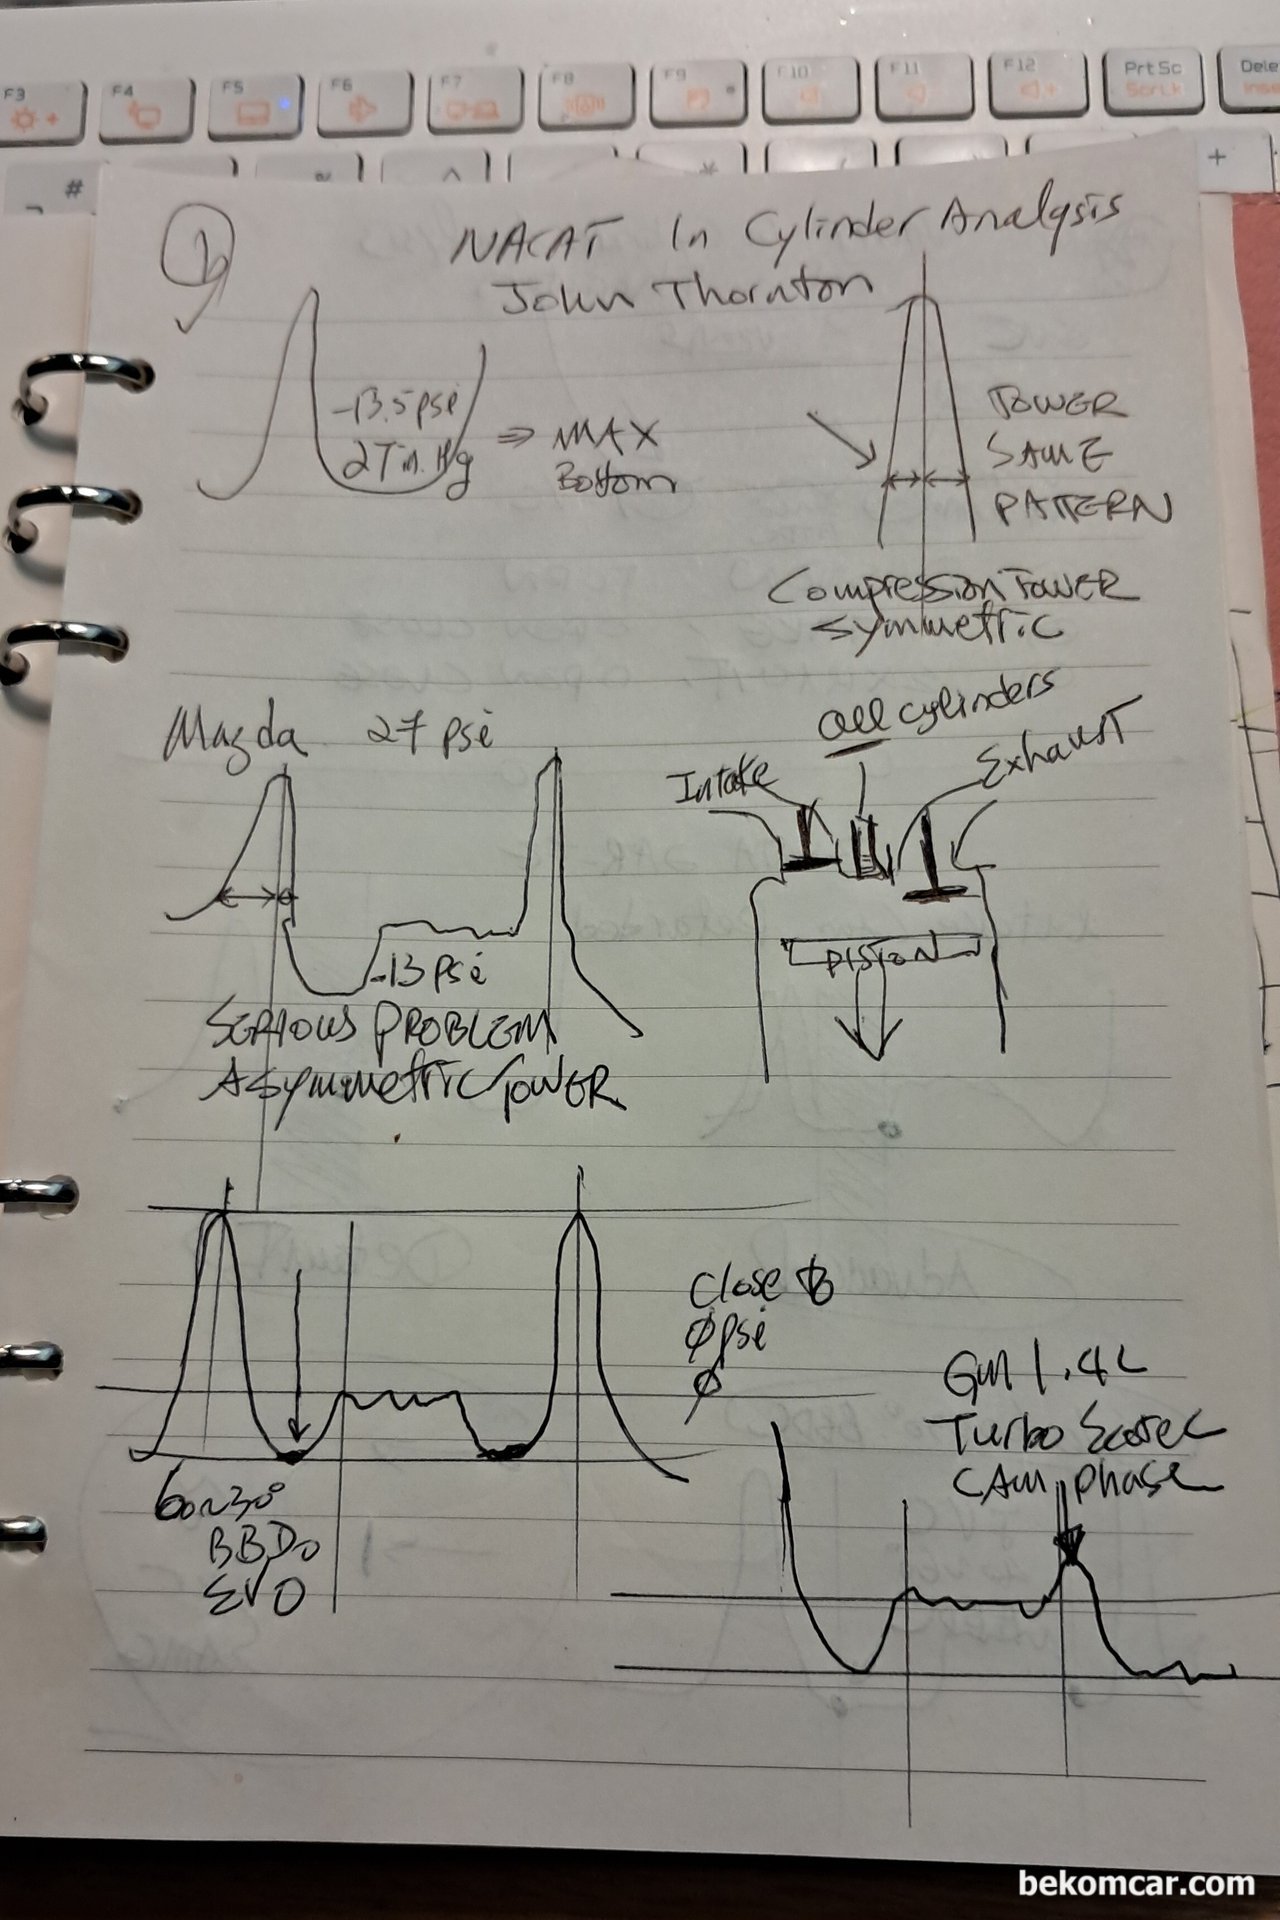 F3
F4
F5
F6
F7
F8
F9
F10
F11
F12
Prt Sc
ScrLk
Dele
Inse
#
+
NACAT In Cylinder Analysis
John Thornton
-13.5 psi
27 in. Hg
⇒ MAX
Bottom
TOWER
SAME
PATTERN
Compression TOWER
Symmetric
Mazda 27 psi
-13 psi
SERIOUS PROBLEM
Asymmetric TOWER
All cylinders
Intake
Exhaust
PISTON
Close to
Ø psi
Ø
60~30°
BBDC
EVO
GM 1.4L
Turbo
CAM phase
bekomcar.com